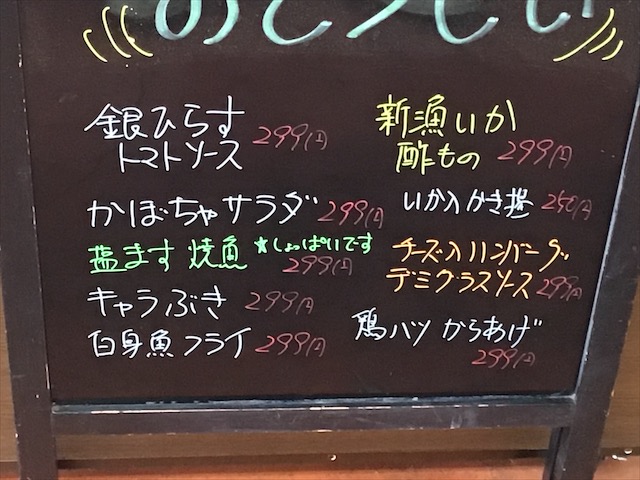 銀ひらす
トマトソース 299円
かぼちゃサラダ 299円
塩ます 焼魚 ★しょっぱいです
299円
キャラぶき 299円
白身魚フライ 299円
新漁いか
酢もの 299円
いか入かき揚 250円
チーズ入ハンバーグ
デミグラスソース 299円
鶏ハツ からあげ
299円